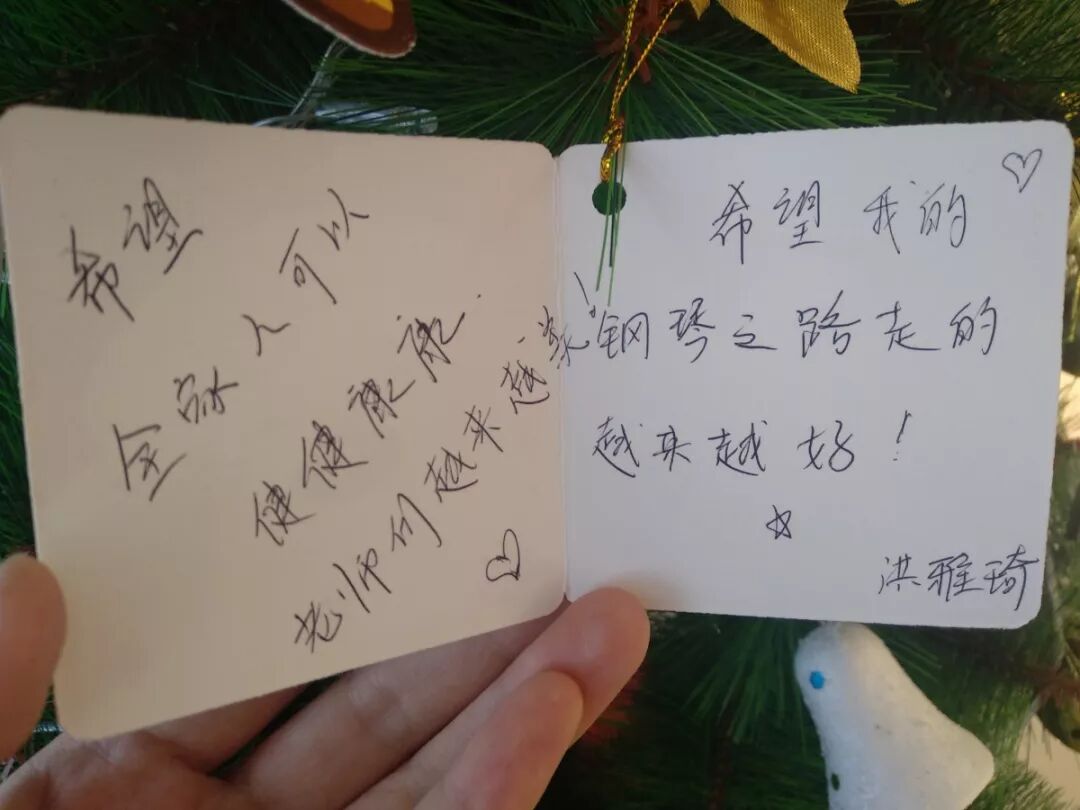 希望
全家人可以
健健康康
老师们越来越棠!
希望我的
钢琴之路走的
越来越好!
洪雅琦